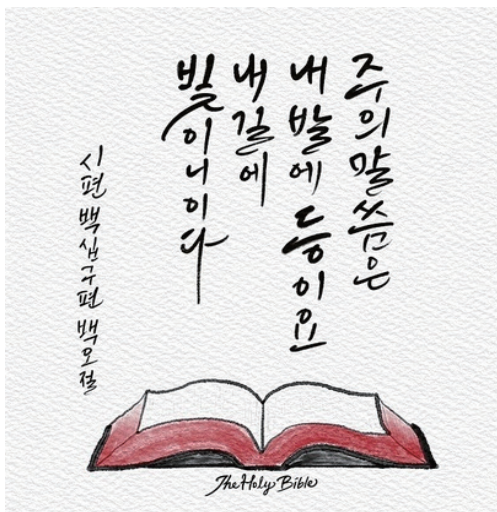 주의말씀은
내발에등이요
내길에
빛이니이다
시편백십구편백오절
The Holy Bible